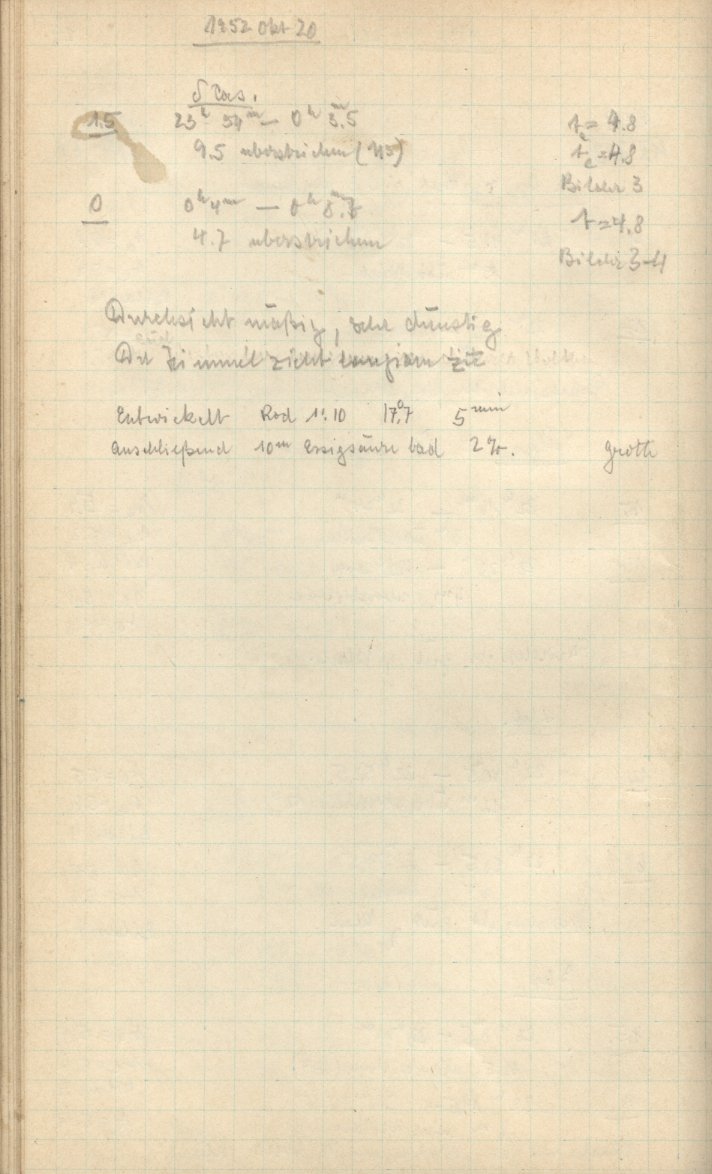 1952 Okt 20
δ Cas.
1.5 23ʰ 54ᵐ — 0ʰ 3ᵐ.5 t = 4.8
9.5 überstrichen (1/15) tₑ = 4.8
Bilder 3
0 0ʰ 4ᵐ — 0ʰ 8ᵐ.7 t = 4.8
4.7 überstrichen
Bilder 3-4
Durchsicht mäßig, sehr dunstig
Der Himmel zieht langsam zu
Entwickelt Rod 1:10 17°.7 5ᵐⁱⁿ
anschließend 10ᵐ Essigsäure bad 2%. Groth